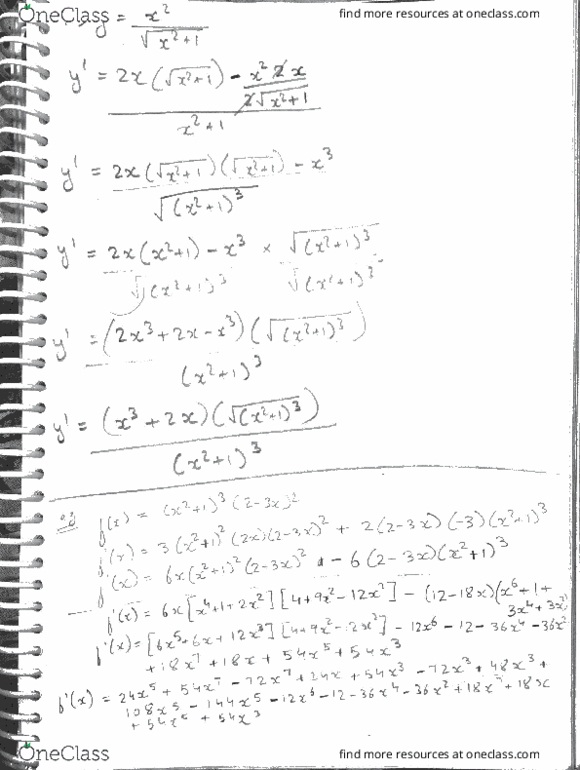 OneClass find more resources at oneclass.com
y = x² / √(x²+1)
y' = (2x(√(x²+1)) - x² 2x / 2√(x²+1)) / (x²+1)
y' = (2x(√(x²+1))(√(x²+1)) - x³) / √((x²+1)³)
y' = (2x(x²+1) - x³) / √((x²+1)³) × √((x²+1)³) / √((x²+1)³)
y' = (2x³+2x-x³)(√((x²+1)³)) / (x²+1)³
y' = (x³+2x)(√((x²+1)³)) / (x²+1)³
f(x) = (x²+1)³(2-3x)²
f'(x) = 3(x²+1)²(2x)(2-3x)² + 2(2-3x)(-3)(x²+1)³
f'(x) = 6x(x²+1)²(2-3x)² - 6(2-3x)(x²+1)³
f'(x) = 6x[x⁴+1+2x²][4+9x²-12x] - (12-18x)(x⁶+1+
3x⁴+3x²)
f'(x) = [6x⁵+6x+12x³][4+9x²-12x] - 12x⁶-12-36x⁴-36x²
+18x⁷+18x+54x⁵+54x³
f'(x) = 24x⁵+54x⁷-72x⁷+24x+54x³-72x³+48x³+
108x⁵-144x⁵-12x⁶-12-36x⁴-36x²+18x⁷+18x
+54x⁵+54x³
OneClass find more resources at oneclass.com